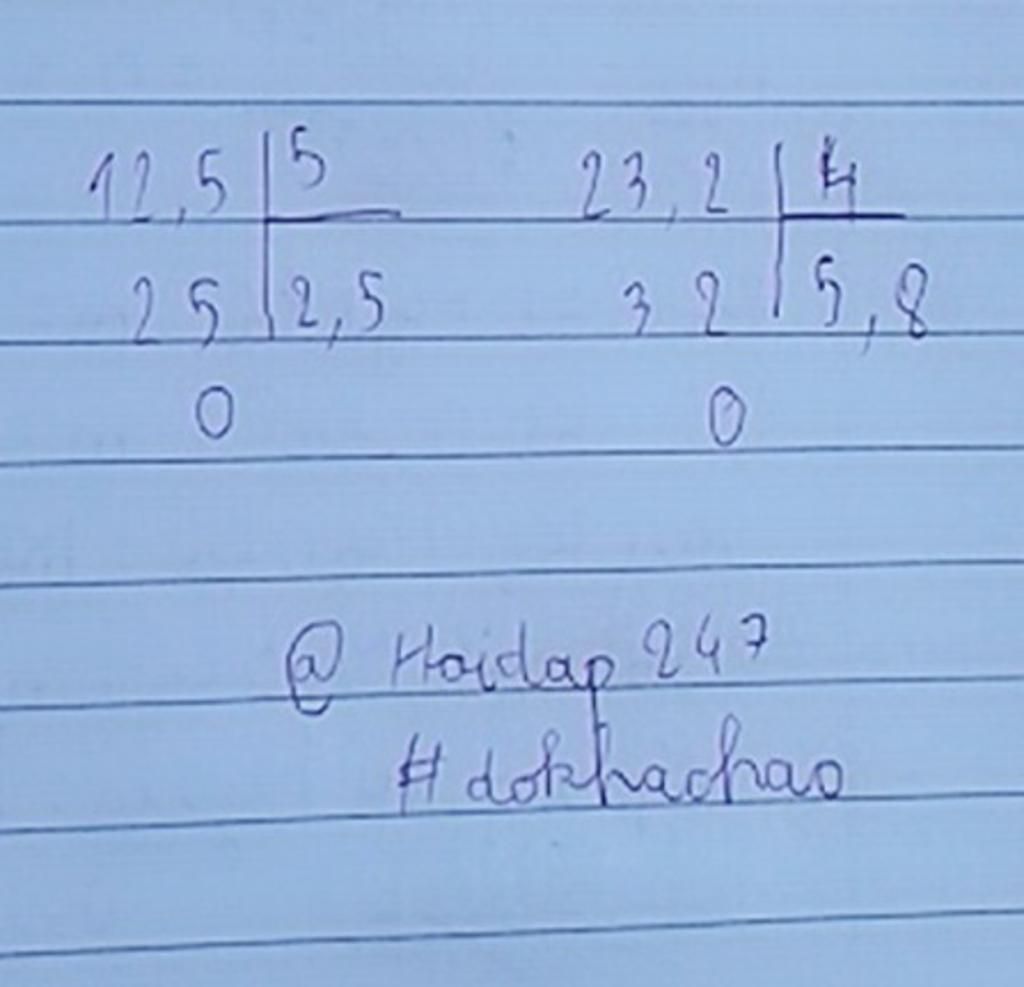 12,5 5 23,2 4
25 2,5 32 5,8
0 0
@ Hoidap 247
# dokhachao